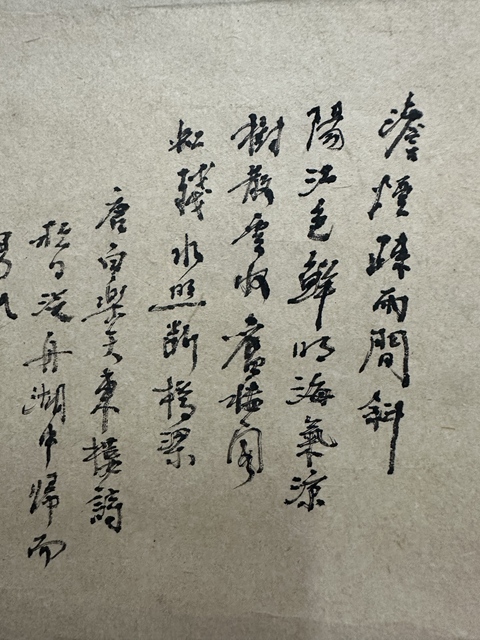 澹煙疎雨間斜
陽江色鮮明海氣涼
樹散雲收舊樓閣
虹殘水照斷橋梁
唐白樂天東樓詩
日泛舟湖中歸而